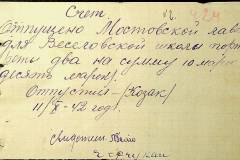 Счет.
Отпущено Мостовской лав
для Веселовской школы порт
реты два на сумму 10 марок
десять марок.
Отпустил /Козак/
11/X-42 год.